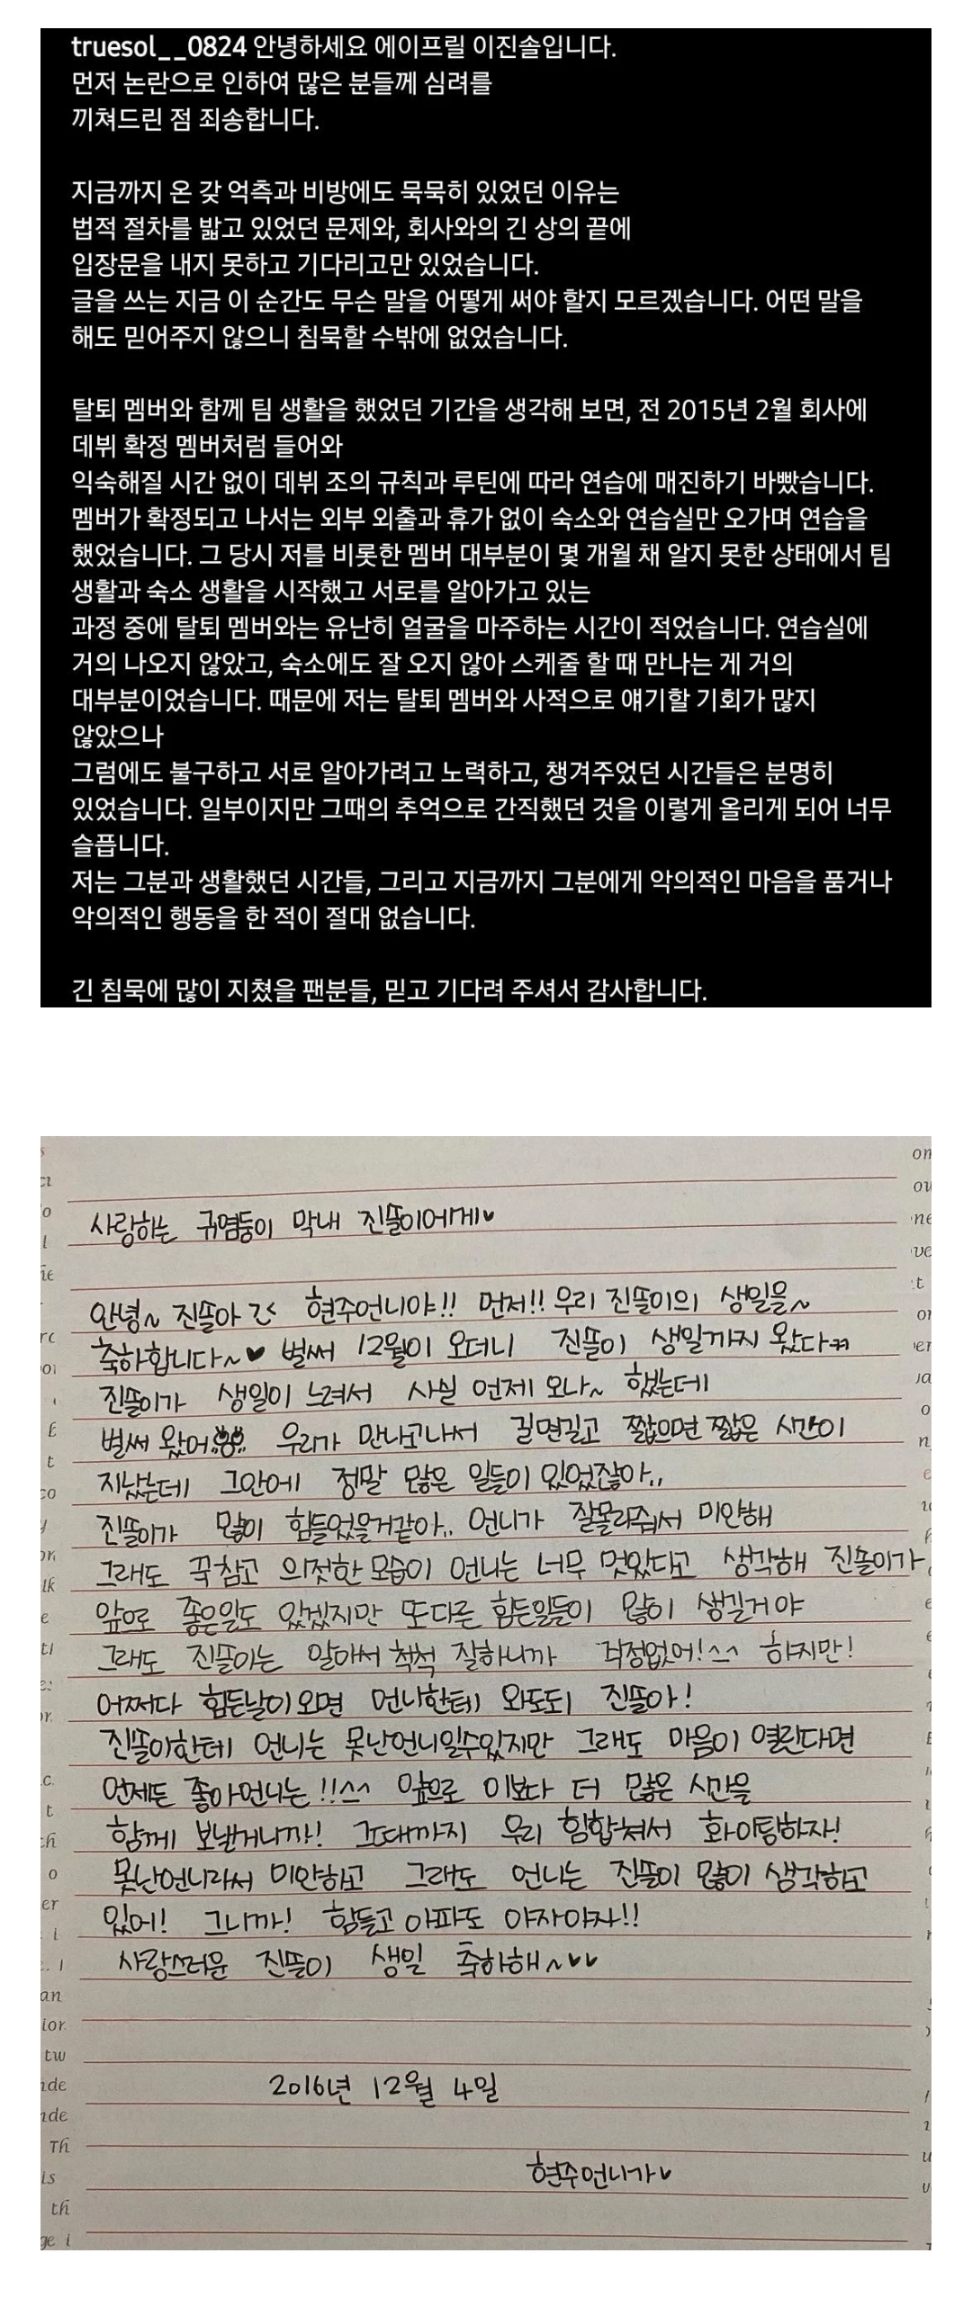 truesol__0824 안녕하세요 에이프릴 이진솔입니다.
먼저 논란으로 인하여 많은 분들께 심려를
끼쳐드린 점 죄송합니다.
지금까지 온 갖 억측과 비방에도 묵묵히 있었던 이유는
법적 절차를 밟고 있었던 문제와, 회사와의 긴 상의 끝에
입장문을 내지 못하고 기다리고만 있었습니다.
글을 쓰는 지금 이 순간도 무슨 말을 어떻게 써야 할지 모르겠습니다. 어떤 말을
해도 믿어주지 않으니 침묵할 수밖에 없었습니다.
탈퇴 멤버와 함께 팀 생활을 했었던 기간을 생각해 보면, 전 2015년 2월 회사에
데뷔 확정 멤버처럼 들어와
익숙해질 시간 없이 데뷔 조의 규칙과 루틴에 따라 연습에 매진하기 바빴습니다.
멤버가 확정되고 나서는 외부 외출과 휴가 없이 숙소와 연습실만 오가며 연습을
했었습니다. 그 당시 저를 비롯한 멤버 대부분이 몇 개월 채 알지 못한 상태에서 팀
생활과 숙소 생활을 시작했고 서로를 알아가고 있는
과정 중에 탈퇴 멤버와는 유난히 얼굴을 마주하는 시간이 적었습니다. 연습실에
거의 나오지 않았고, 숙소에도 잘 오지 않아 스케줄 할 때 만나는 게 거의
대부분이었습니다. 때문에 저는 탈퇴 멤버와 사적으로 얘기할 기회가 많지
않았으나
그럼에도 불구하고 서로 알아가려고 노력하고, 챙겨주었던 시간들은 분명히
있었습니다. 일부이지만 그때의 추억으로 간직했던 것을 이렇게 올리게 되어 너무
슬픕니다.
저는 그분과 생활했던 시간들, 그리고 지금까지 그분에게 악의적인 마음을 품거나
악의적인 행동을 한 적이 절대 없습니다.
긴 침묵에 많이 지쳤을 팬분들, 믿고 기다려 주셔서 감사합니다.
사랑하는 귀염둥이 막내 진뚤이에게♥
안녕~ 진뚤아 ㅋㅋ 현주언니야!! 먼저!! 우리 진뚤이의 생일을~
축하합니다~♥ 벌써 12월이 오더니 진뚤이 생일까지 왔다ㅠㅠ
진뚤이가 생일이 느려서 사실 언제 오나~ 했는데
벌써 왔어 우리가 만나고나서 길면길고 짧으면 짧은 시간이
지났는데 그안에 정말 많은 일들이 있었잖아..
진뚤이가 많이 힘들었을거같아.. 언니가 잘몰라줘서 미안해
그래도 꾹참고 의젓한 모습이 언니는 너무 멋있다고 생각해 진뚤이가
앞으로 좋은일도 있겠지만 또다른 힘든일들이 많이 생길거야
그래도 진뚤이는 알아서 척척 잘하니까 걱정없어!^^ 하지만!
어쩌다 힘든날이오면 언니한테 와도돼 진뚤아!
진뚤이한테 언니는 못난언니일수있지만 그래도 마음이 열린다면
언제든 좋아언니는!!^^ 앞으로 이보다 더 많은 시간을
함께 보낼거니까! 그때까지 우리 힘합쳐서 화이팅하자!
못난언니라서 미안하고 그래도 언니는 진뚤이 많이 생각하고
있어! 그니까! 힘들고 아파도 아자아자!!
사랑스러운 진뚤이 생일 축하해~♥♥
2016년 12월 4일
현주언니가♥